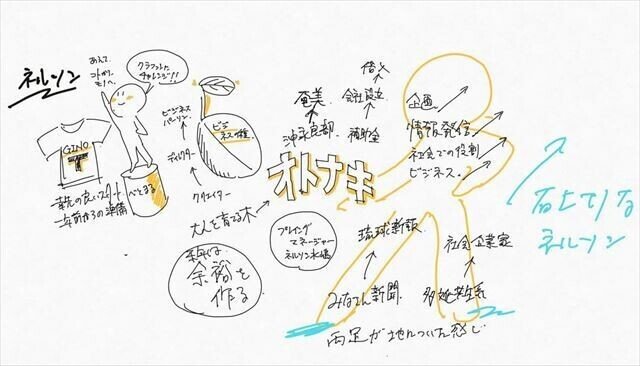 ネルソン
あえて、
コトから
モノへ。
クラフトに
チャレンジ!!
GINO
T
ぺとまる
一年前からの準備
ビジネス
パーソン
ディレクター
クリエイター
ビジ
ネス種
大人を育てる木
余裕を
作る
オトナキ
プレイング
マネージャー
ネルソン水嶋
奄美
沖永良部
借入
会社設立
補助金
企画
情報発信
社会での役割
ビジネス
琉球新報
みなてん新聞
社会企業家
多文化共生系
両足が地についた感じ
右上がりな
ネルソン